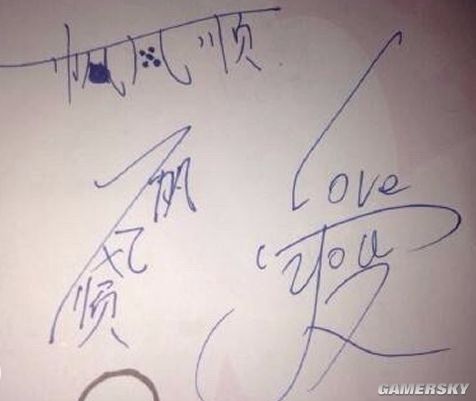 一帆风顺
一帆风顺
Love
You
GAMERSKY